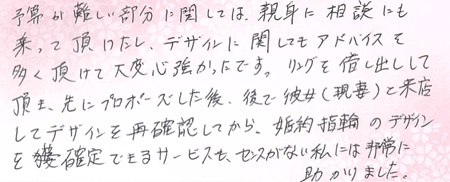 予算が難しい部分に関しては、親身に相談にも
乗って頂けたし、デザインに関してもアドバイスを
多く頂けて大変心強かったです。リングを借し出しして
頂き、先にプロポーズした後、後で彼女(現妻)と来店
してデザインを再確認してから、婚約指輪のデザイン
を確定できるサービスも、センスがない私には非常に
助かりました。